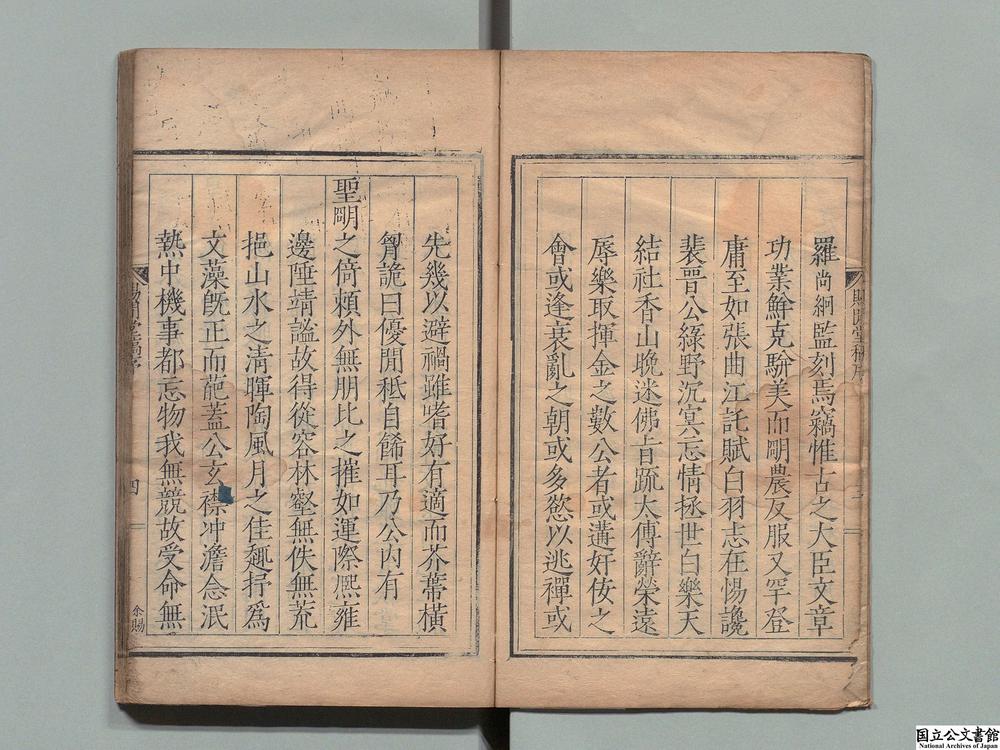 羅尚絅監刻焉竊惟古之大臣文章
功業鮮克駢美而明農反服又罕登
庸至如張曲江託賦白羽志在惕讒
裴晉公綠野沉冥忘情拯世白樂天
結社香山晚迷佛旨踈太傅辭榮遠
辱樂取揮金之數公者或遘奸佞之
會或逢衰亂之朝或多慾以逃禪或
賜閒堂稿序
先幾以避禍雖嗜好有適而芥蔕橫
胷詭曰優閒秪自餙耳乃公內有
聖明之倚頼外無朋比之摧如運際熈雍
邊陲靖謐故得從容林壑無佚無荒
挹山水之清暉陶風月之佳趣抒爲
文藻旣正而葩蓋公玄襟冲澹念泯
熱中機事都忘物我無競故受命無
四
余賜
国立公文書館
National Archives of Japan